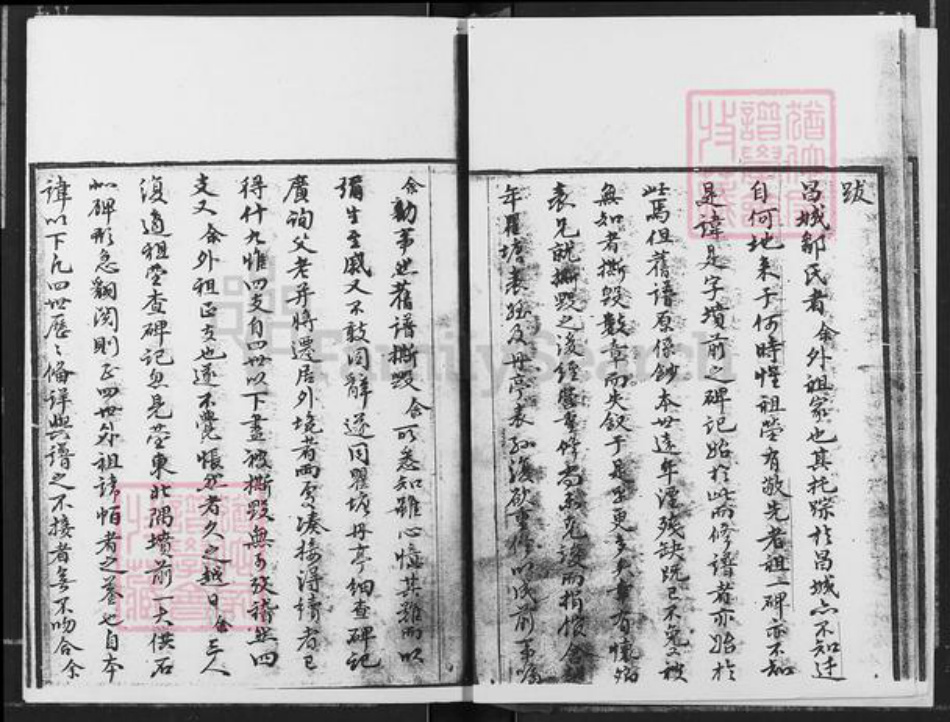 跋
昌城鄒氏者余外祖家也其托踪於昌城亦不知遷
自何地來于何時惟祖塋有敬先考祖一碑亦不知
是諱是字墳前之碑記始於此而修譜者亦始於
此焉但舊譜原係鈔本世遠年湮殘缺既已不免又被
無知者撕毀數章而失敘于是
表兄說撕毀之後經營重修尚未克竣而捐館
年瞿塘表姪及丹亭表孫復欲重修以成前事
余勸事迨舊譜撕毀余所悉知雖心憶其難而以
甥生至戚又不敢固辭遂同瞿塘丹亭細查碑記
廣詢父老并將遷居外境者兩處湊接淂譜者已
得什九惟四支自四世以下盡被撕毀無可考譜然四
支又余外祖正支也遂不覺悵然者久之越日余三人
復適祖塋查碑記忽見塋東北隅墳前一大供石
如碑形急翻閱則正四世外祖諱 者之墓也自本
諱以下凡四世歷歷備詳與譜之不接者無不吻合余
FamilySearch